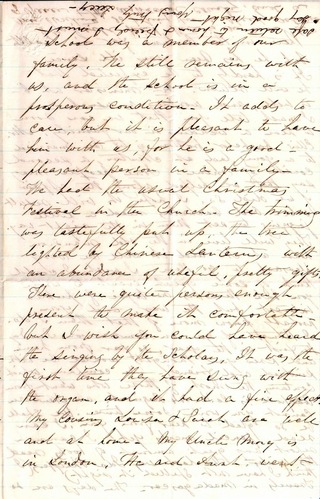 School was a member of our
family. He still remains with
us, and the school is in a
prosperous condition. It adds to
care, but it is pleasant to have
him with us, for he is a good
pleasant person in a family.
We had the usual Christmas
Festival in the Church. The trimming
was tastefully put up, the tree
lighted by Chinese Lanterns, with
an abundance of useful, pretty gifts.
There were quite persons enough
present to make it comfortable
but I wish you could have heard
the singing by the Scholars. It was the
first time they have sung with
the organ, and it had a fine effect
My Cousins Louisa & Sarah are well
and at home. My Uncle
is in London. We